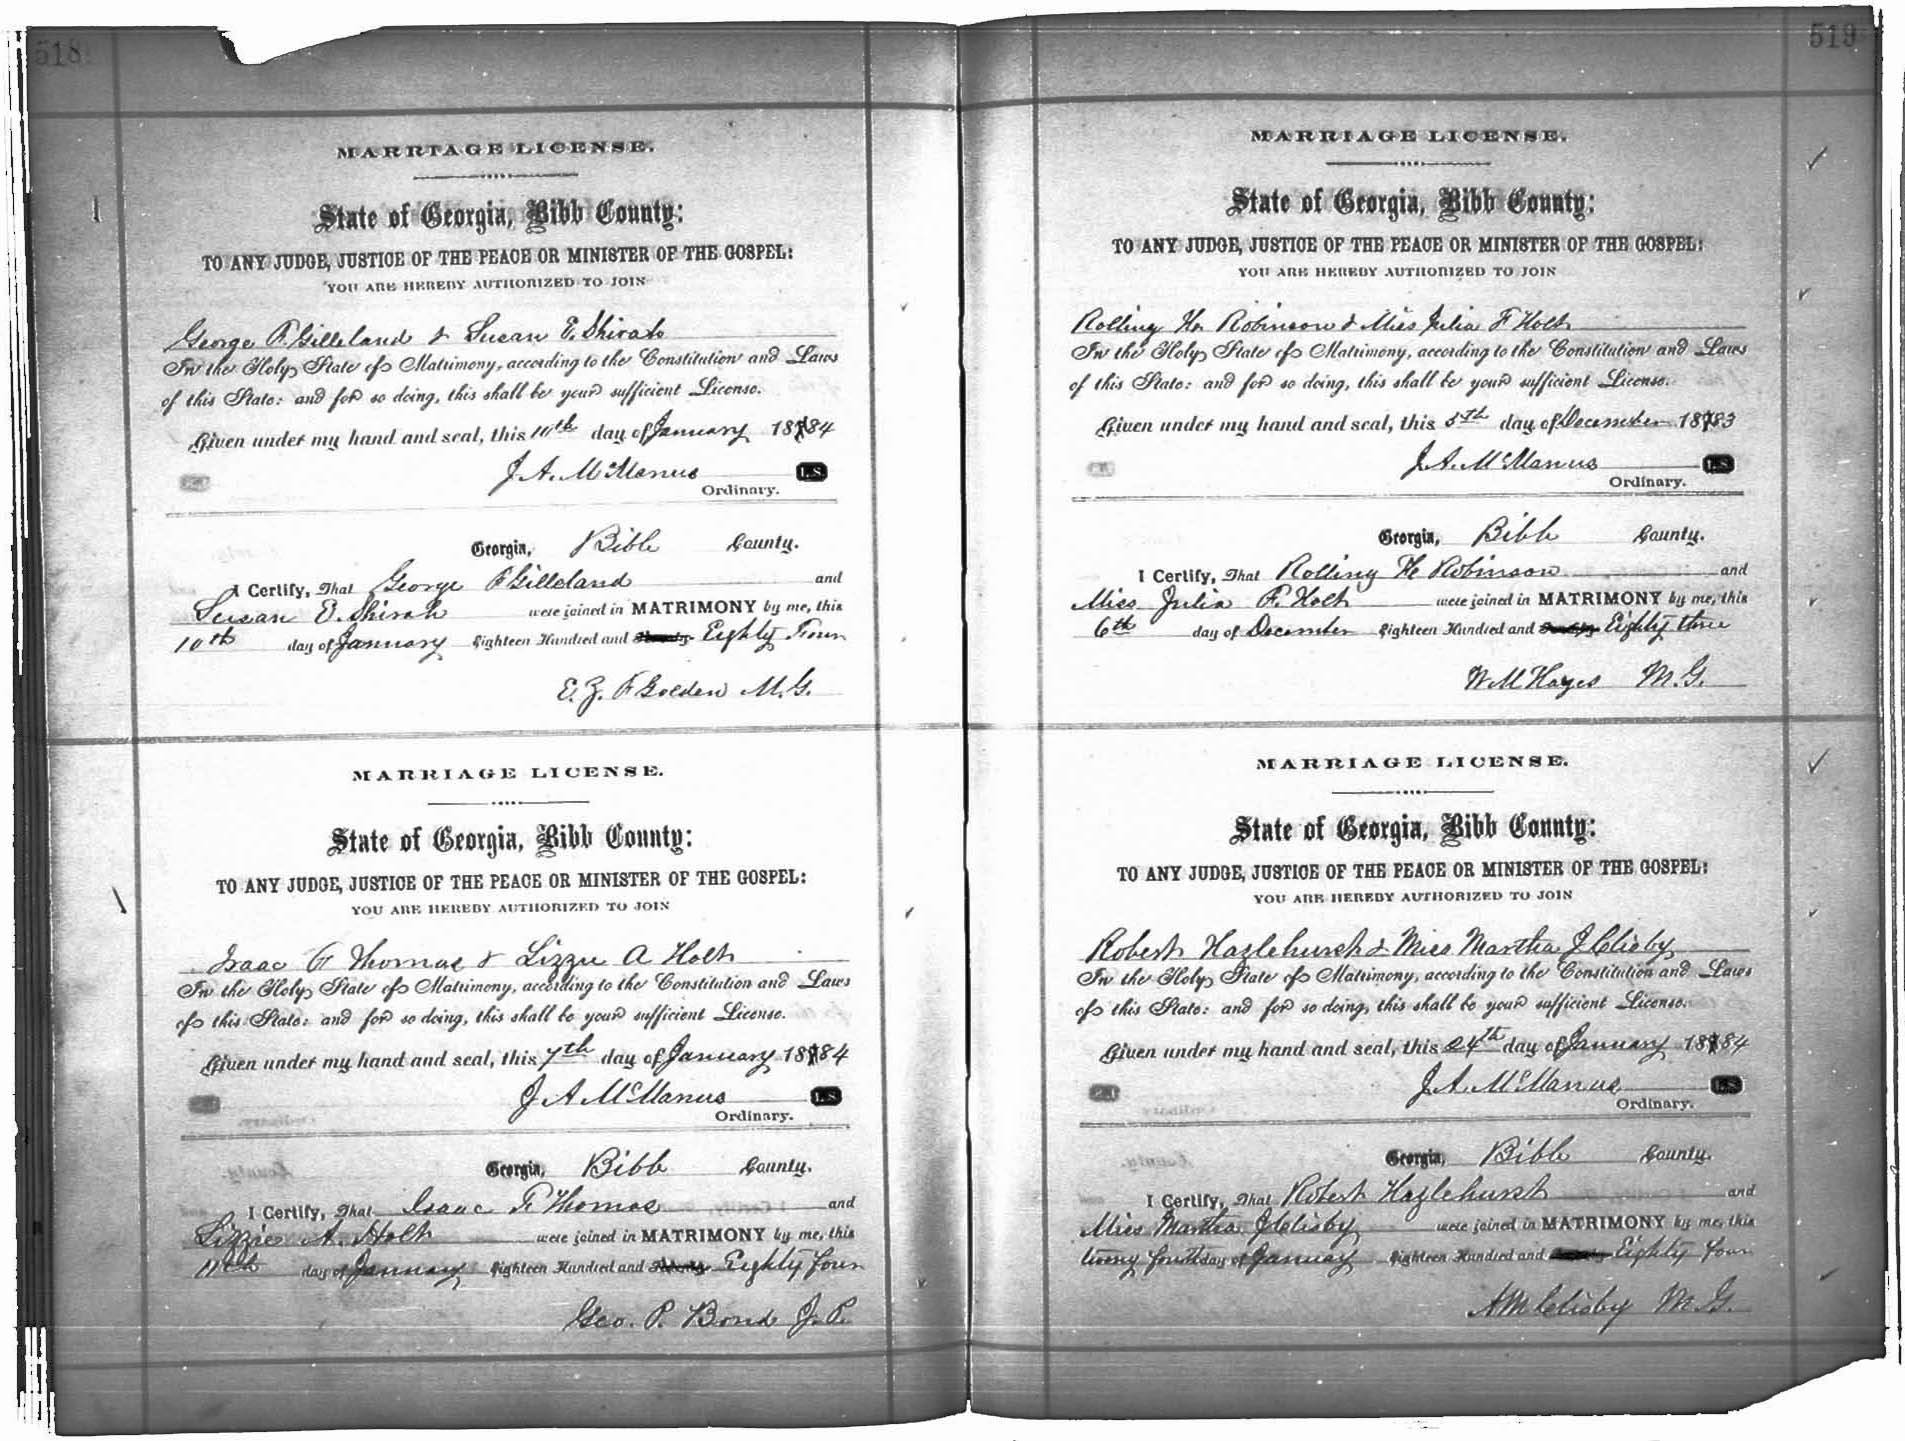 518
MARRTAGE LICENSE.
State of Georgia, Bibb County:
TO ANY JUDGE, JUSTICE OF THE PEACE OR MINISTER OF THE GOSPEL:
YOU ARE HEREBY AUTHORIZED TO JOIN
George F. Gilleland & Susan E. Shirah
In the Holy State of Matrimony, according to the Constitution and Laws
of this State: and for so doing, this shall be your sufficient License.
Given under my hand and seal, this 10th day of January 1884
J. A. McManus L.S.
Ordinary.
Georgia, Bibb County.
I Certify, That George F Gilleland and
Susan E. Shirah were joined in MATRIMONY by me, this
10th day of January Eighteen Hundred and Eighty Four
E. Z. F Golden M.G.
MARRIAGE LICENSE.
State of Georgia, Bibb County:
TO ANY JUDGE, JUSTICE OF THE PEACE OR MINISTER OF THE GOSPEL:
YOU ARE HEREBY AUTHORIZED TO JOIN
Isaac Thomas & Lizzie A Holt
In the Holy State of Matrimony, according to the Constitution and Laws
of this State: and for so doing, this shall be your sufficient License.
Given under my hand and seal, this 7th day of January 1884
J A McManus L.S.
Ordinary.
Georgia, Bibb County.
I Certify, That Isaac F. Thomas and
Lizzie A. Holt were joined in MATRIMONY by me, this
day of January Eighteen Hundred and Eighty four
Geo. P. Bond J.P.
519
MARRIAGE LICENSE.
State of Georgia, Bibb County:
TO ANY JUDGE, JUSTICE OF THE PEACE OR MINISTER OF THE GOSPEL:
YOU ARE HEREBY AUTHORIZED TO JOIN
Rolling H. Robinson & Miss Julia F Holt
In the Holy State of Matrimony, according to the Constitution and Laws
of this State: and for so doing, this shall be your sufficient License.
Given under my hand and seal, this 5th day of December 1883
J. A. McManus L.S.
Ordinary.
Georgia, Bibb County.
I Certify, That Rolling H Robinson and
Miss Julia F. Holt were joined in MATRIMONY by me, this
6th day of December Eighteen Hundred and Eighty three
W M Hayes M.G.
MARRIAGE LICENSE.
State of Georgia, Bibb County:
TO ANY JUDGE, JUSTICE OF THE PEACE OR MINISTER OF THE GOSPEL:
YOU ARE HEREBY AUTHORIZED TO JOIN
Robert Hazlehurst & Miss Martha J Clisby
In the Holy State of Matrimony, according to the Constitution and Laws
of this State: and for so doing, this shall be your sufficient License.
Given under my hand and seal, this 24th day of January 1884
J. A. McManus L.S.
Ordinary.
Georgia, Bibb County.
I Certify, That Robert Hazlehurst and
Miss Martha J Clisby were joined in MATRIMONY by me, this
twenty fourth day of January Eighteen Hundred and Eighty four
A M Clisby M.G.